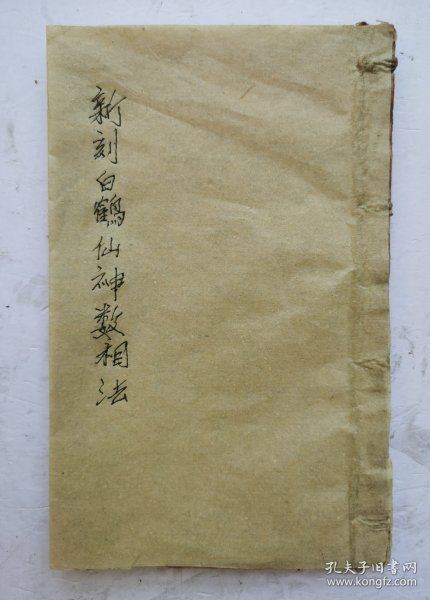 新刻白鶴仙神數相法
孔夫子旧书网
www.kongfz.com